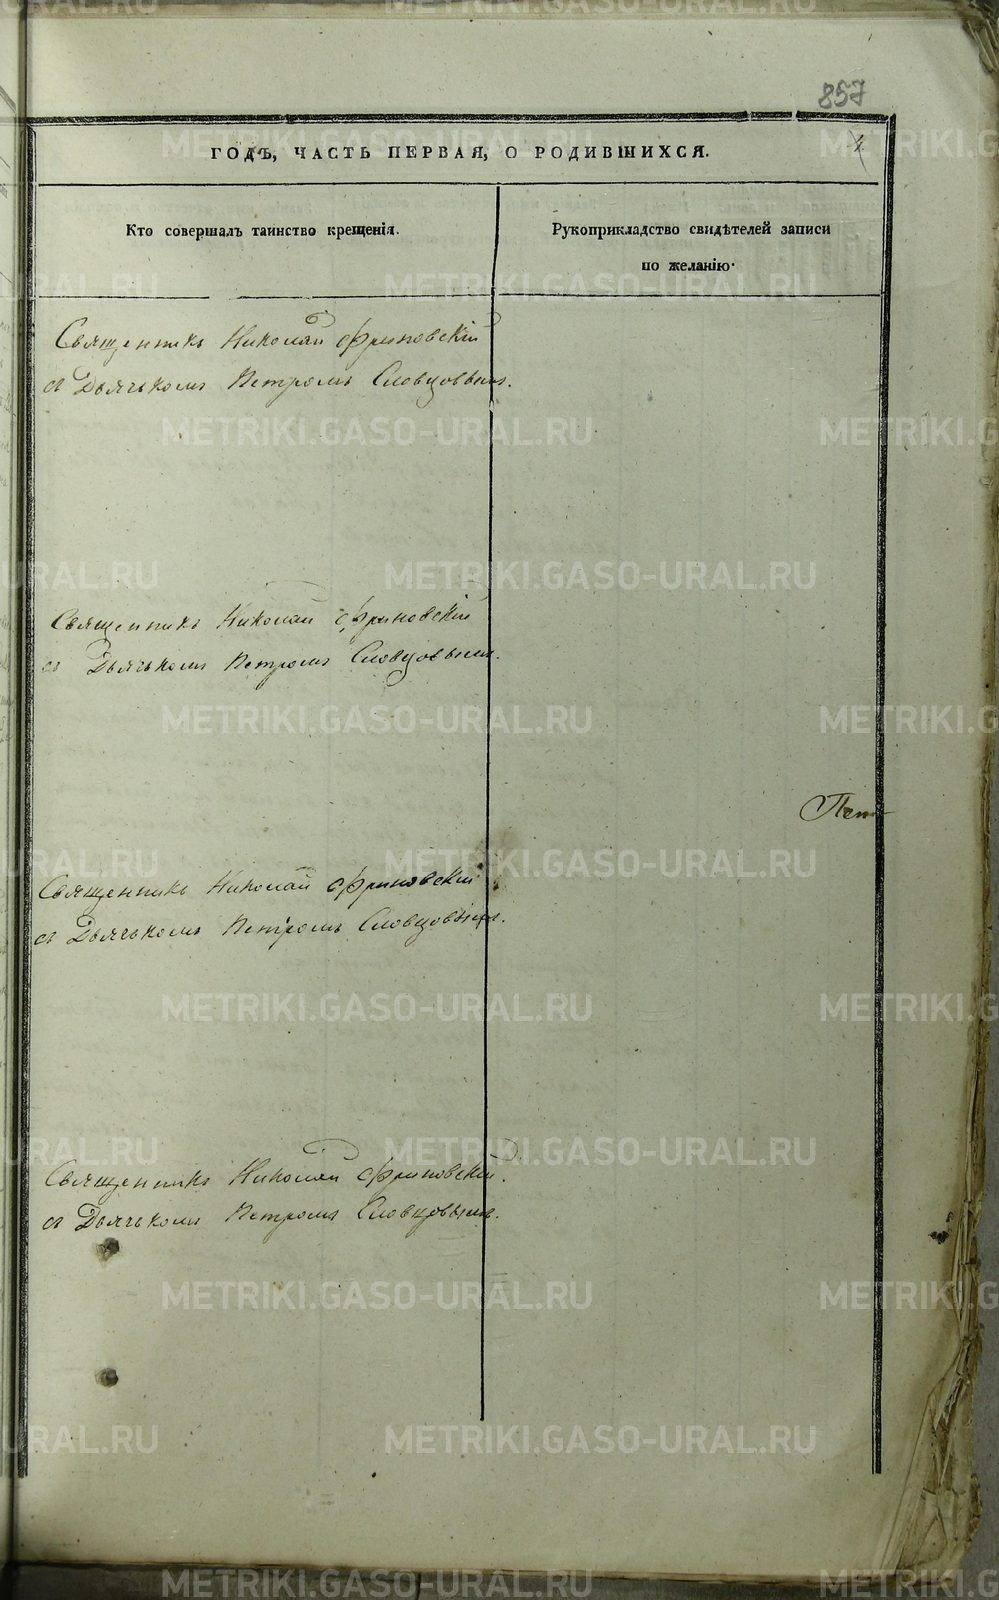 857
ГОДЪ, ЧАСТЬ ПЕРВАЯ, О РОДИВШИХСЯ.
Кто совершалъ таинство крещенія.
Рукоприкладство свидѣтелей записи
по желанію.
Священникъ Николай Фриновскій
съ Дьячькомъ Петромъ Словцовымъ.
Священникъ Николай Фриновскій
съ Дьячькомъ Петромъ Словцовымъ.
Священникъ Николай Фриновскій
съ Дьячькомъ Петромъ Словцовымъ.
Священникъ Николай Фриновскій.
съ Дьячькомъ Петромъ Словцовымъ.
METRIKI.GASO-URAL.RU